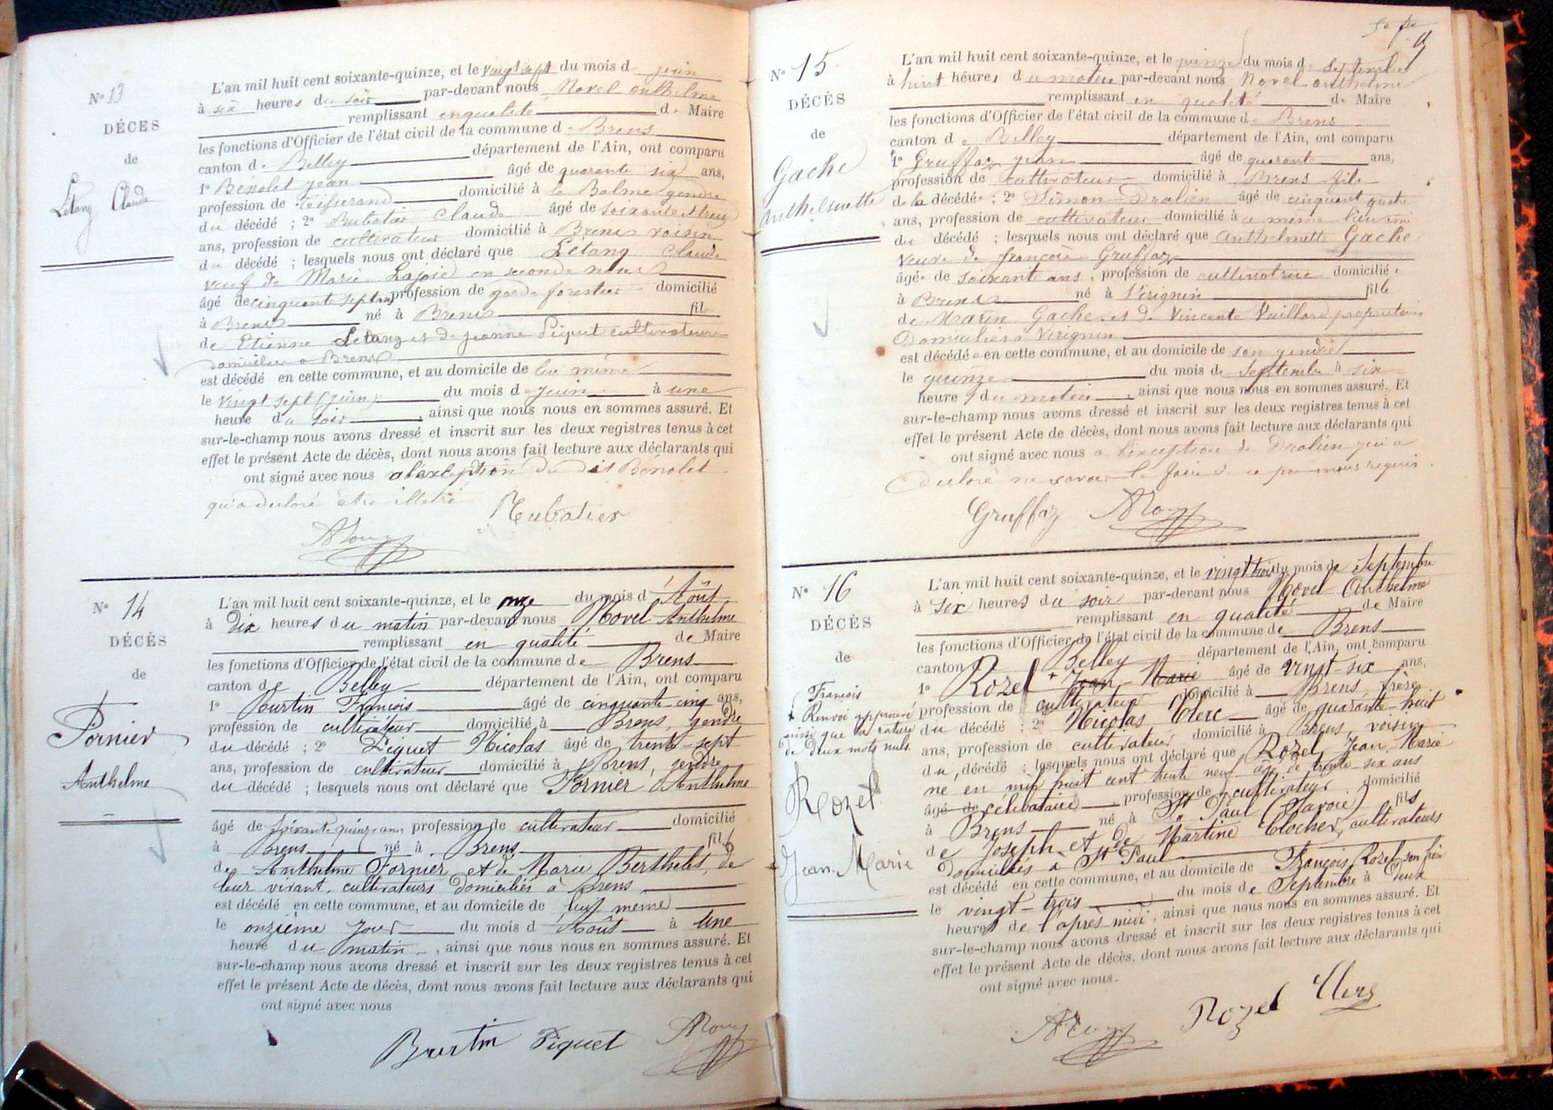 N° 13
DÉCÈS
de
Létang Claude
L'an mil huit cent soixante-quinze, et le vingt sept du mois d juin
à six heures du soir par-devant nous Novel Anthelme
remplissant en qualité de Maire
les fonctions d'Officier de l'état civil de la commune de Brens
canton de Belley département de l'Ain, ont comparu
1° Benolet jean âgé de quarante six ans,
profession de domicilié à la Balme gendre
du décédé ; 2° Claude âgé de soixante et treize
ans, profession de cultivateur domicilié à Brens voisin
du décédé ; lesquels nous ont déclaré que Létang Claude
veuf de Marie Lajoie en seconde noces
âgé de cinquante sept ans profession de garde forestier domicilié
à Brens né à Brens fils
de Etienne Létang et de jeanne Piquet cultivateurs
domiciliés à Brens
est décédé en cette commune, et au domicile de lui même
le vingt sept (juin) du mois d juin à une
heure du soir, ainsi que nous nous en sommes assuré. Et
sur-le-champ nous avons dressé et inscrit sur les deux registres tenus à cet
effet le présent Acte de décès, dont nous avons fait lecture aux déclarants qui
ont signé avec nous a l'exception du dit Benolet
qui a declaré etre illetré
N° 14
DÉCÈS
de
Fornier
Anthelme
L'an mil huit cent soixante-quinze, et le onze du mois d'Août
à Dix heures du matin par-devant nous Novel Anthelme
remplissant en qualité de Maire
les fonctions d'Officier de l'état civil de la commune de Brens
canton de Belley département de l'Ain, ont comparu
1° Burtin François âgé de cinquante cinq ans,
profession de cultivateur domicilié à Brens, gendre
du décédé ; 2° Piquet Nicolas âgé de trente-sept
ans, profession de cultivateur domicilié à Brens, gendre
du décédé ; lesquels nous ont déclaré que Fornier Anthelme
âgé de soixante quinze ans, profession de cultivateur domicilié
à Brens né à Brens fils
de Anthelme Fornier et de Marie Berthelet, de
leur vivant cultivateurs Domiciliés à Brens
est décédé en cette commune, et au domicile de lui même
le onzième jour du mois d'Août à Une
heure du matin, ainsi que nous nous en sommes assuré. Et
sur-le-champ nous avons dressé et inscrit sur les deux registres tenus à cet
effet le présent Acte de décès, dont nous avons fait lecture aux déclarants qui
ont signé avec nous
Burtin Piquet
N° 15
DÉCÈS
de
Gache
Anthelmette
L'an mil huit cent soixante-quinze, et le quinze du mois de Septembre
à huit heures du matin par-devant nous Novel Anthelme
remplissant en qualité de Maire
les fonctions d'Officier de l'état civil de la commune de Brens
canton de Belley département de l'Ain, ont comparu
1° Gruffaz jean âgé de quarante ans,
profession de cultivateur domicilié à Brens fils
de la décédée ; 2° Dralien âgé de cinquante quatre
ans, profession de cultivateur domicilié à même lieu
du décédé ; lesquels nous ont déclaré que Anthelmette Gache
veuve de françois Gruffaz
âgée de soixante ans, profession de cultivatrice domicilié
à Brens né à Virignin fils
de Marin Gache et de Vincente Vuillard propriétaires
Domiciliés à Virignin
est décédée en cette commune, et au domicile de son gendre
le quinze du mois de Septembre à six
heures du matin, ainsi que nous nous en sommes assuré. Et
sur-le-champ nous avons dressé et inscrit sur les deux registres tenus à cet
effet le présent Acte de décès, dont nous avons fait lecture aux déclarants qui
ont signé avec nous a l'exception de Dralien qui a
declaré ne savoir le faire de ce par nous requis.
Gruffaz
N° 16
DÉCÈS
de
François
+ Renvoi approuvé
ainsi que la rature
de deux mots nuls
Rozel
Jean-Marie
L'an mil huit cent soixante-quinze, et le vingt trois du mois de Septembre
à Six heures du soir par-devant nous Novel Anthelme
remplissant en qualité de Maire
les fonctions d'Officier de l'état civil de la commune de Brens
canton Belley département de l'Ain, ont comparu
1° Rozel + Jean-Marie âgé de vingt-six ans,
profession de cultivateur domicilié à Brens, frère
du décédé ; 2° Nicolas Clerc âgé de quarante-huit
ans, profession de cultivateur domicilié à Brens, voisin
du décédé ; lesquels nous ont déclaré que Rozel Jean-Marie
né en mil huit cent trente neuf âgé de trente six ans
âgé de célibataire profession de cultivateur domicilié
à Brens né à St Paul (Savoie) fils
de Joseph et de Martine Clocher, cultivateurs
Domiciliés à St Paul
est décédé en cette commune, et au domicile de François Rozel son frère
le vingt-trois du mois de Septembre à Deux
heures de l'après midi, ainsi que nous nous en sommes assuré. Et
sur-le-champ nous avons dressé et inscrit sur les deux registres tenus à cet
effet le présent Acte de décès, dont nous avons fait lecture aux déclarants qui
ont signé avec nous.
Rozel Clerc